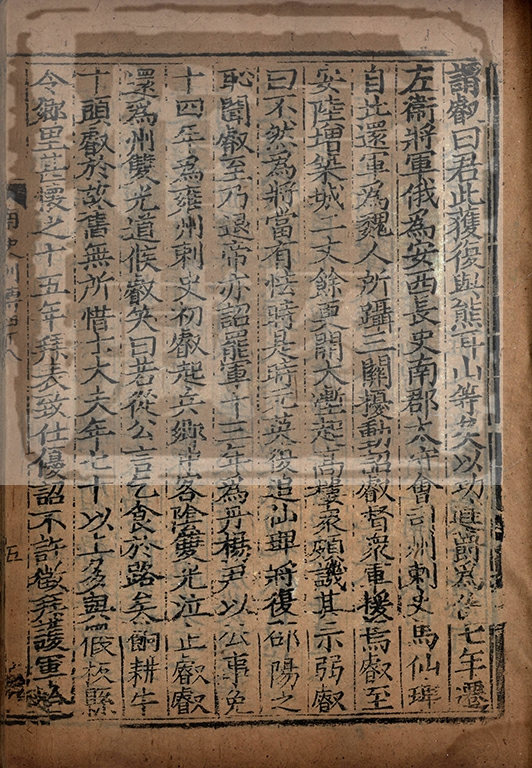 謂叡曰君此獲復與熊耳山等矣以功進爵為侯七年遷
左衛將軍俄為安西長史南郡太守會司州刺史馬仙琕
自北還軍為魏人所躡三關擾動詔叡督衆軍援焉叡至
安陸增築城二丈餘更開大壍起高樓衆頗譏其示弱叡
曰不然為將當有怯時是時元英復追仙琕將復邵陽之
恥聞叡至乃退帝亦詔罷軍十三年為丹楊尹以公事免
十四年為雍州刺史初叡起兵鄉中客陰雙光泣止叡叡
還為州雙光道候叡笑曰若從公言乞食於路矣餉耕牛
十頭叡於故舊無所惜士大夫年七十以上多與假板縣
令鄉里甚懷之十五年拜表致仕優詔不許徵拜護軍
五